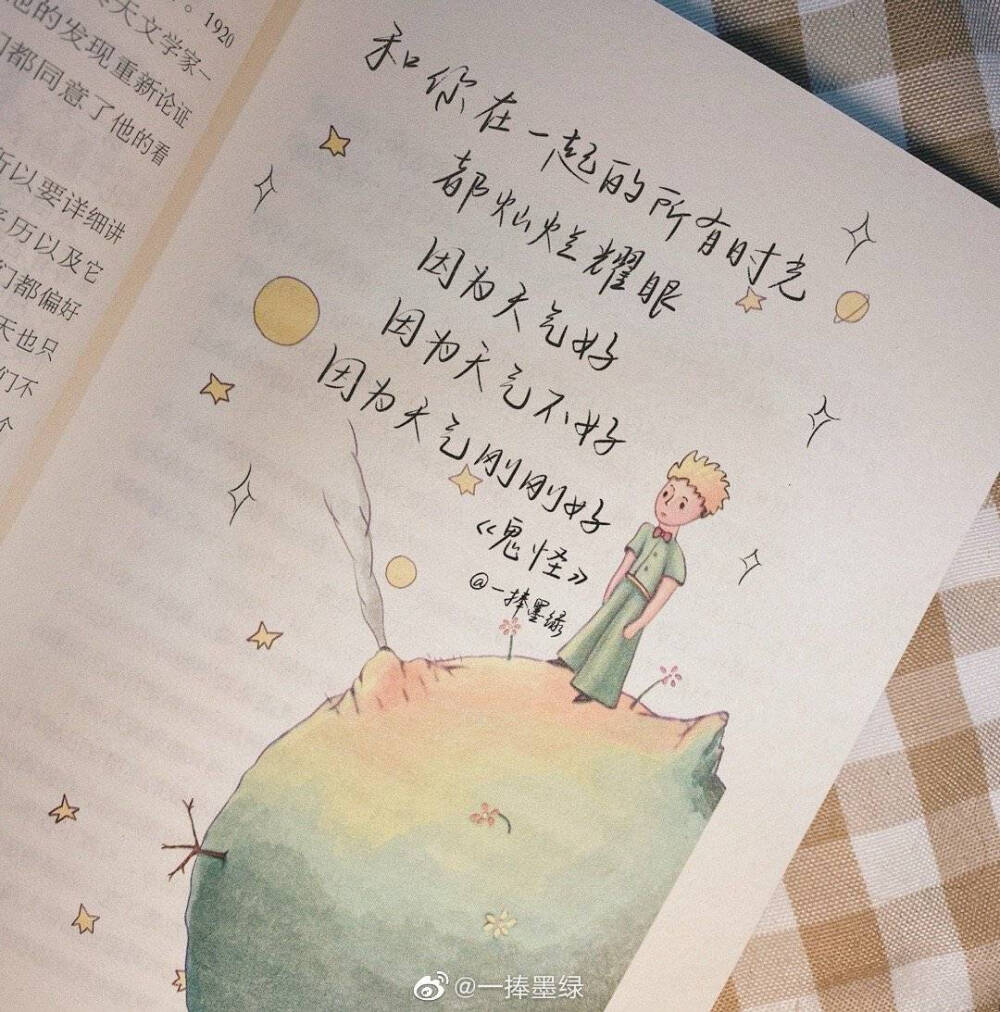 。1920
天文学家一
他的发现重新论证
们都同意了他的看
所以要详细讲
历以及它
们都偏好
天也只
们不
个
和你在一起的所有时光
都灿烂耀眼
因为天气好
因为天气不好
因为天气刚刚好
《鬼怪》
@一捧墨绿
@一捧墨绿